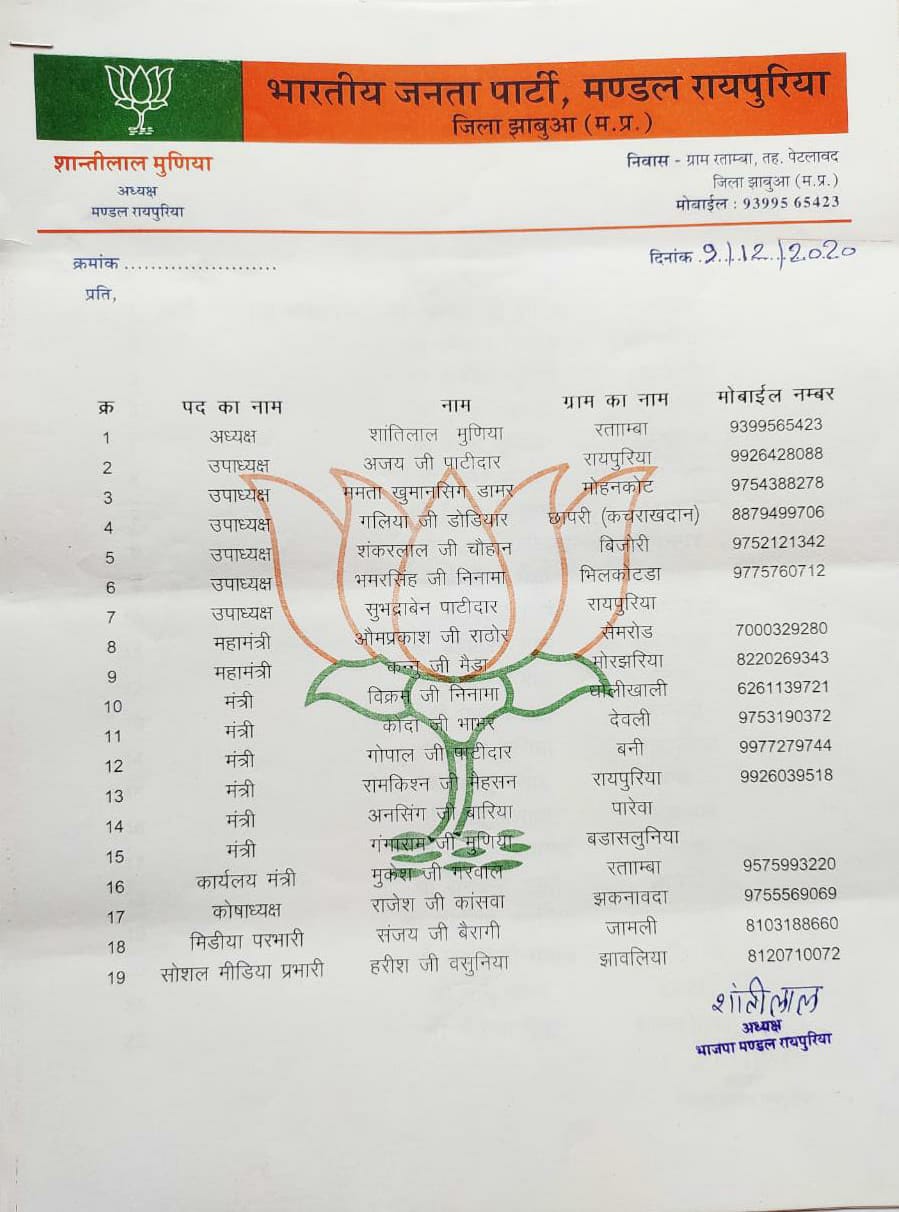 भारतीय जनता पार्टी, मण्डल रायपुरिया
जिला झाबुआ (म.प्र.)
शान्तीलाल मुणिया
अध्यक्ष
मण्डल रायपुरिया
निवास - ग्राम रताम्बा, तह. पेटलावद
जिला झाबुआ (म.प्र.)
मोबाईल : 93995 65423
क्रमांक .......................
दिनांक 9/12/2020
प्रति,
क्र पद का नाम नाम ग्राम का नाम मोबाईल नम्बर
1 अध्यक्ष शांतिलाल मुणिया रतााम्बा 9399565423
2 उपाध्यक्ष अजय जी पाटीदार रायपुरिया 9926428088
3 उपाध्यक्ष ममता खुमानसिग डामर मोहनकोट 9754388278
4 उपाध्यक्ष गलिया जी डोडियार छापरी (कचराखदान) 8879499706
5 उपाध्यक्ष शंकरलाल जी चौहान बिजोरी 9752121342
6 उपाध्यक्ष भमरसिंह जी निनामा भिलकोटडा 9775760712
7 उपाध्यक्ष सुभद्राबेन पाटीदार रायपुरिया
8 महामंत्री औमप्रकाश जी राठोर सेमरोड 7000329280
9 महामंत्री कन्नु जी मैडा मोरझरिया 8220269343
10 मंत्री विक्रम जी निनामा 6261139721
11 मंत्री कोदा जी भाभर देवली 9753190372
12 मंत्री गोपाल जी पाटीदार बनी 9977279744
13 मंत्री रामकिश्न जी मेहसन रायपुरिया 9926039518
14 मंत्री अनसिंग जी बारिया पारेवा
15 मंत्री गंगाराम जी मुणिया बडासलुनिया
16 कार्यलय मंत्री मुकेश जी गरवाल रतााम्बा 9575993220
17 कोषाध्यक्ष राजेश जी कांसवा झकनावदा 9755569069
18 मिडीया परभारी संजय जी बैरागी जामली 8103188660
19 सोशल मीडिया प्रभारी हरीश जी वसुनिया झावलिया 8120710072
शांतीलाल
अध्यक्ष
भाजपा मण्डल रायपुरिया